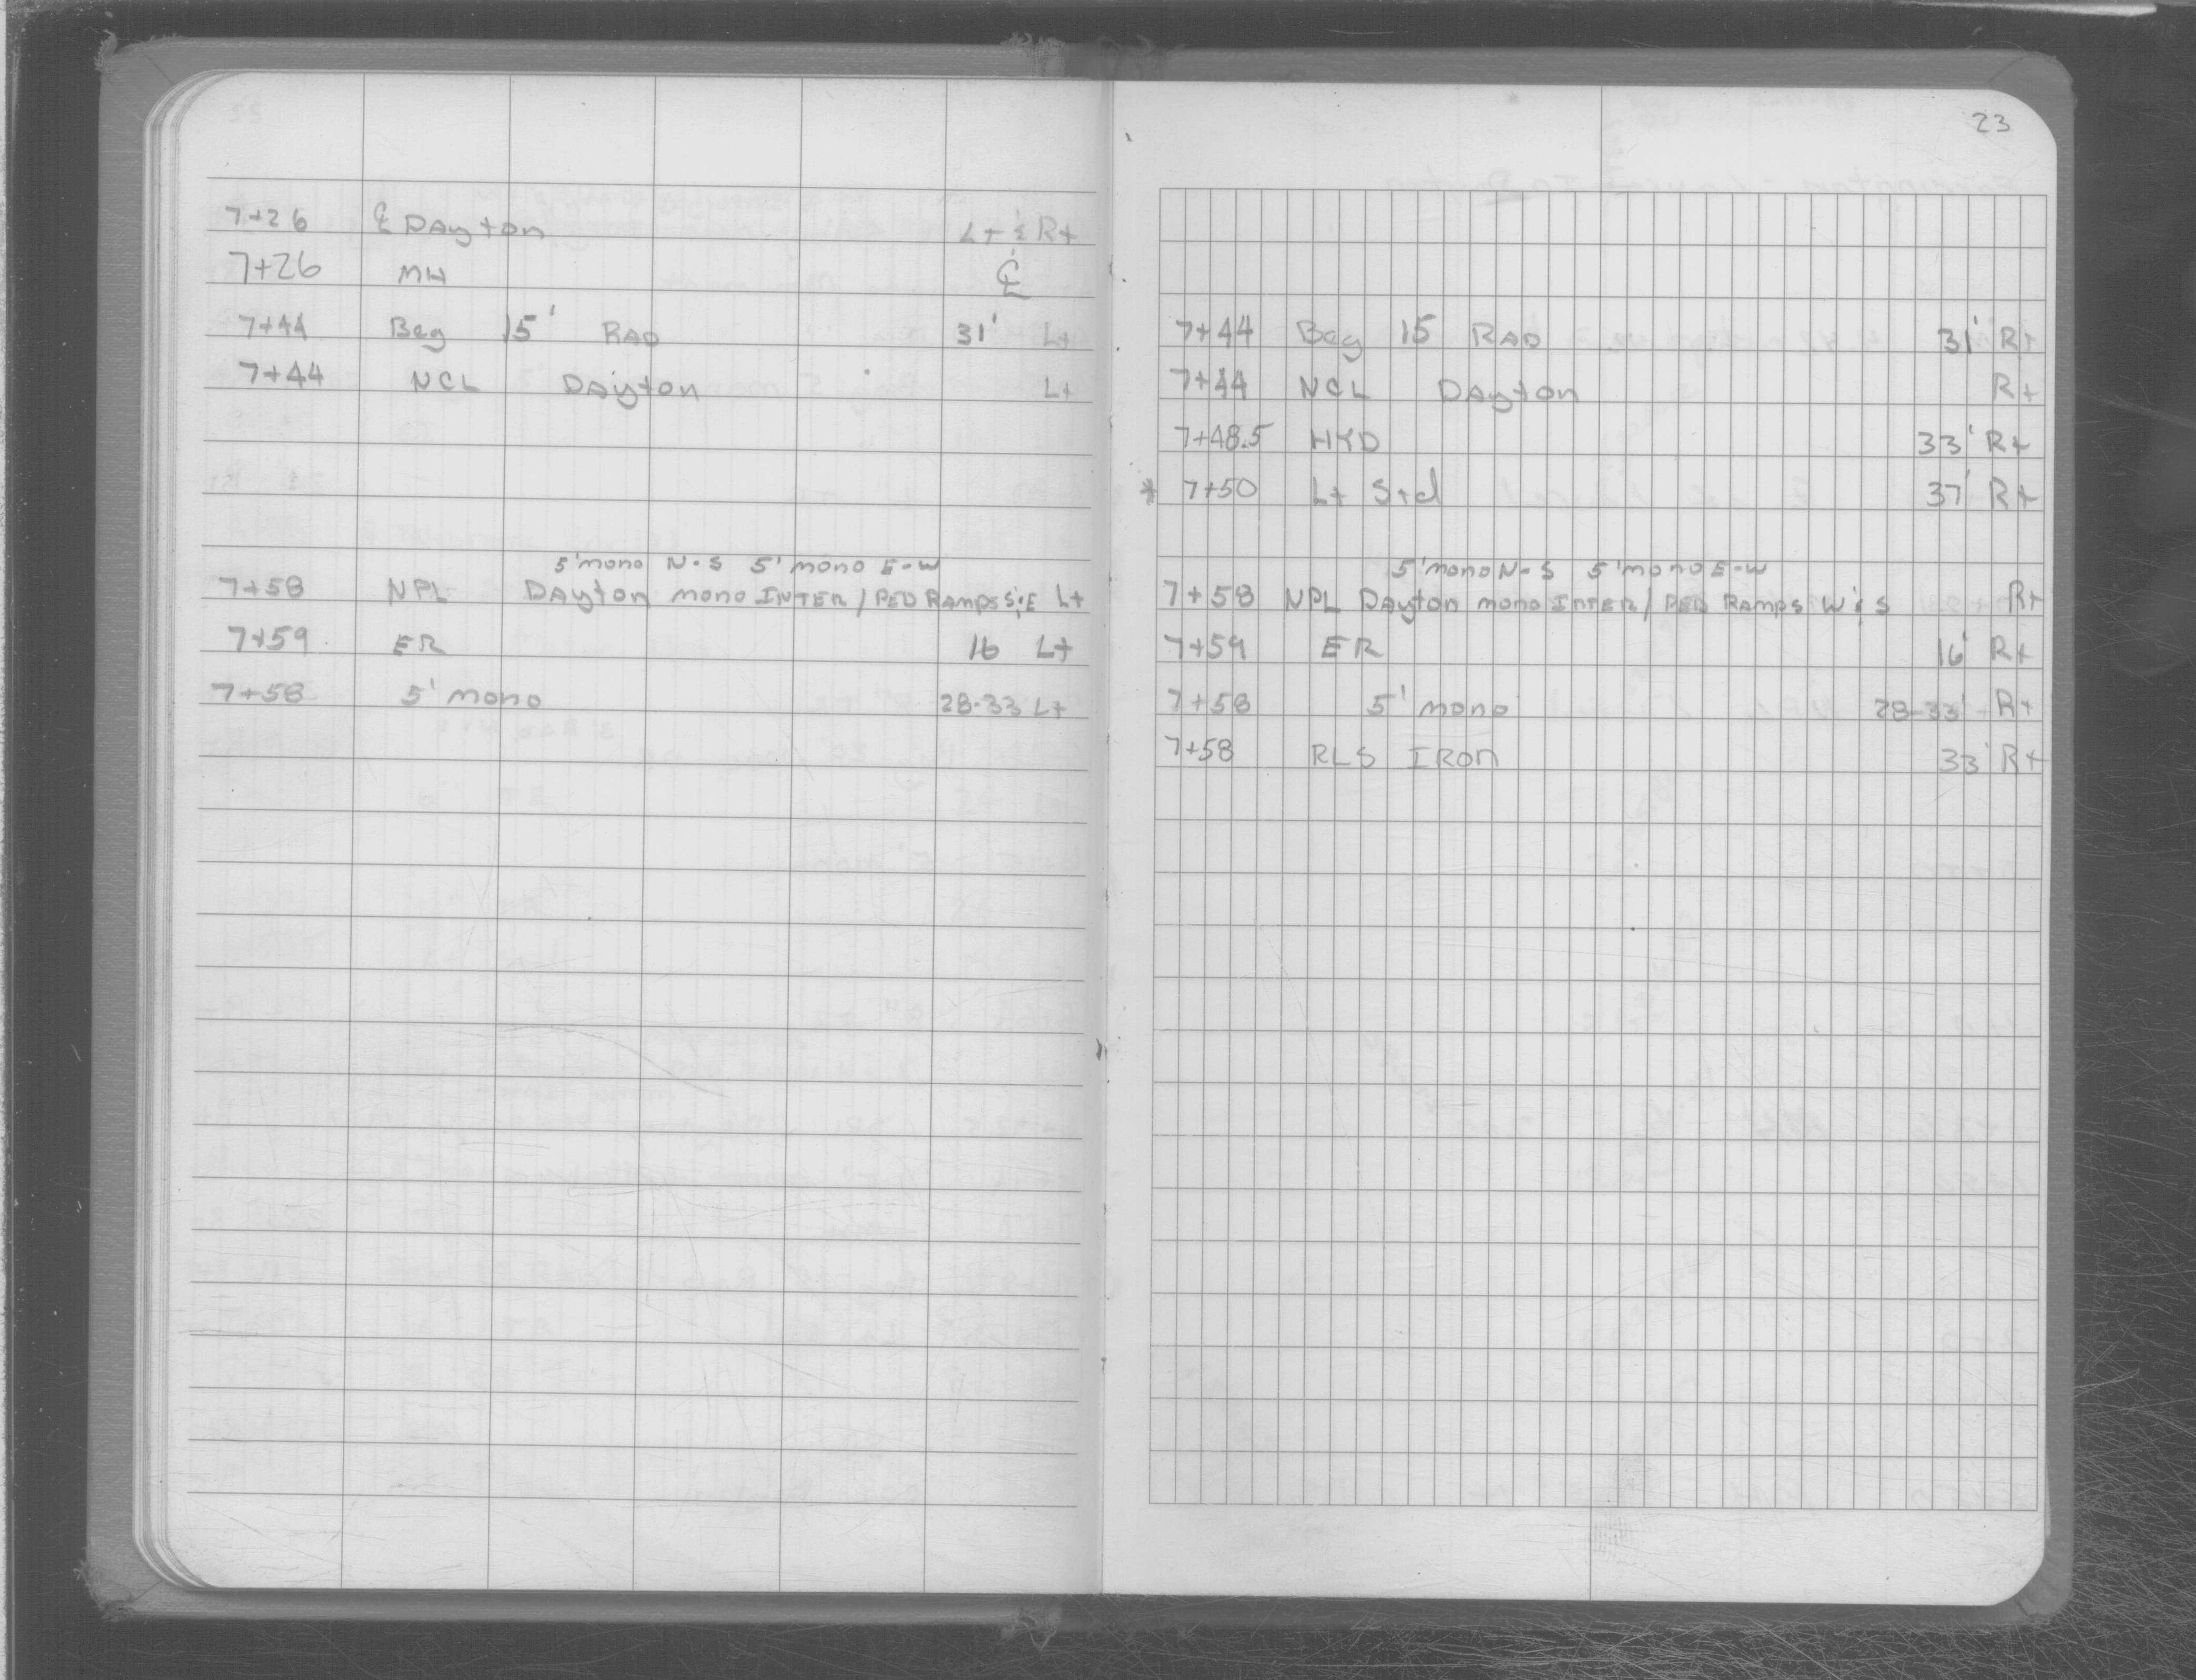 7+26 ℄ Dayton Lt & Rt
7+26 MH ℄
7+44 Beg 15' RAD 31' Lt
7+44 NCL Dayton Lt
5' mono N-S 5' mono E-W
7+58 NPL Dayton mono INTER / PED RAMPS S & E Lt
7+59 ER 16 Lt
7+58 5' mono 28-33 Lt
23
7+44 Beg 15 RAD 31' Rt
7+44 NCL Dayton Rt
7+48.5 HYD 33' Rt
* 7+50 Lt Std 37' Rt
5' mono N-S 5' mono E-W
7+58 NPL Dayton mono INTER / PED RAMPS W & S Rt
7+59 ER 16' Rt
7+58 5' mono 28-33' Rt
7+58 RLS IRON 33' Rt